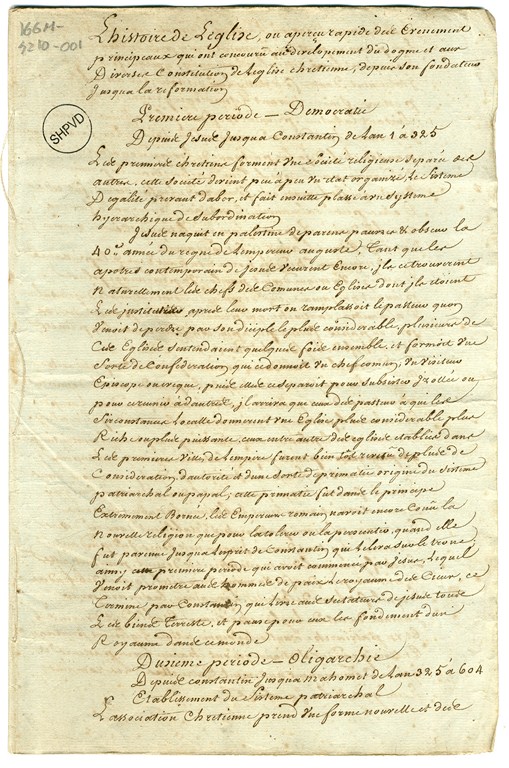 166M-
4210-001
SHPVD
L'histoire de L'eglise, ou aperçu rapide des Evenement
principaux qui ont concouru au dévelopement du dogme et aux
Diverses Constitution de Leglise chretienne, depuis son fondateur
Jusqua la reformation
Premiere periode - Democratie
Depuis Jesus Jusqua Constantin de Lan 1 à 325
Les premiers chretiens forment une société religieuse separée des
autres. cette société devient peu a peu un etat organizé. Le Sistème
Degalité prevaut dabor, et fait ensuitte plasse a un Systeme
hyerarchique de Subordination
Jesus naquit en palestine de parens pauvres & obscur la
40.e année du regne de Lempereur auguste. Tant que les
apotres contemporain de Jesus veurent Encore, jls se trouverent
Naturellement les chefs des Comunes ou Eglises dont jls etoient
Les institutes après leur mort on ramplassoit le pasteur quon
Venoit de perdre par son disciple le plus considerable plusieurs de
Ces Eglises sentendaient quelque fois ensemble et formoit une
Sorte de Confédération, qui se donnoit un chef comun, un visiteur
Episcope ou eveque, puis elles se separoit pour subsister Izollée ou
pour se reunir à dautres, jl arriva que ceux des pasteurs à qui les
Sirconstances Localle donnerent une Eglise plus considerable plus
Riche ou plus puissante, ceux entre autre des eglises etablies dans
Les premieres Villes de Lempire furent bien tot revetu de plus de
Consideration, dautorité et dune sorte de primatie origine du Sistème
patriarchal ou papal; cette primatie fut dans le principe
Extremement Bornée, les Empereurs romain navoit encore Conu la
Nouvelle religion que pour la tolerer ou la persecuter, quand elle
fut parvenue Jusqua Lesprit de Constantin qui Leleva sur le trone
ainsy cette premiere periode qui avoit commencé par Jesus, Lequel
Venoit prometre aux hommes de paix Le royaume des Cieux, se
Termine par Constantin qui livre aux sectateurs de jesus tous
Les biens Terrestre, et pause pour eux les fondement dun
Royaume dans ce monde
Dusieme periode - Oligarchie
Depuis constantin Jusqua mahomet de Lan 325 à 604
Etablissement du Sisteme patriarchal
L'association Chretienne prend une forme nouvelle et des